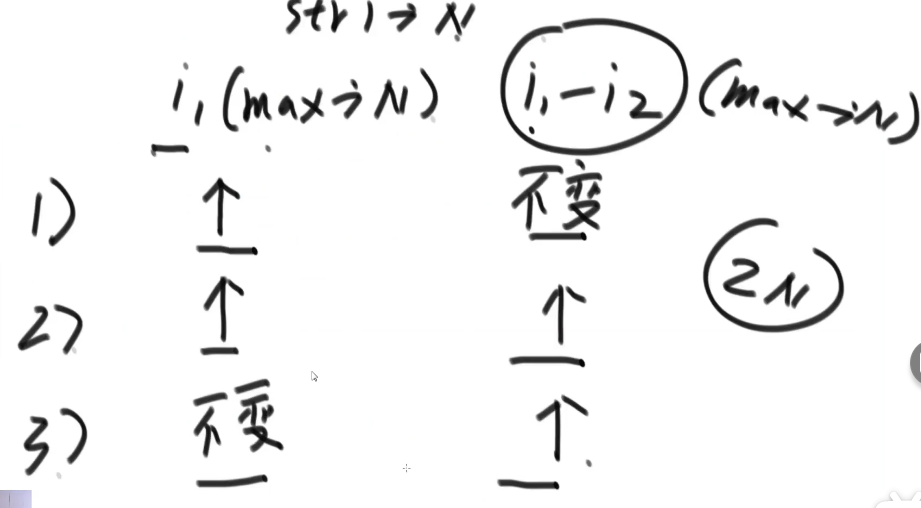 str1→N
i₁(max→N) i₁-i₂ (max→N)
1) ↑ 不变
2N
2) ↑ ↑
3) 不变 ↑